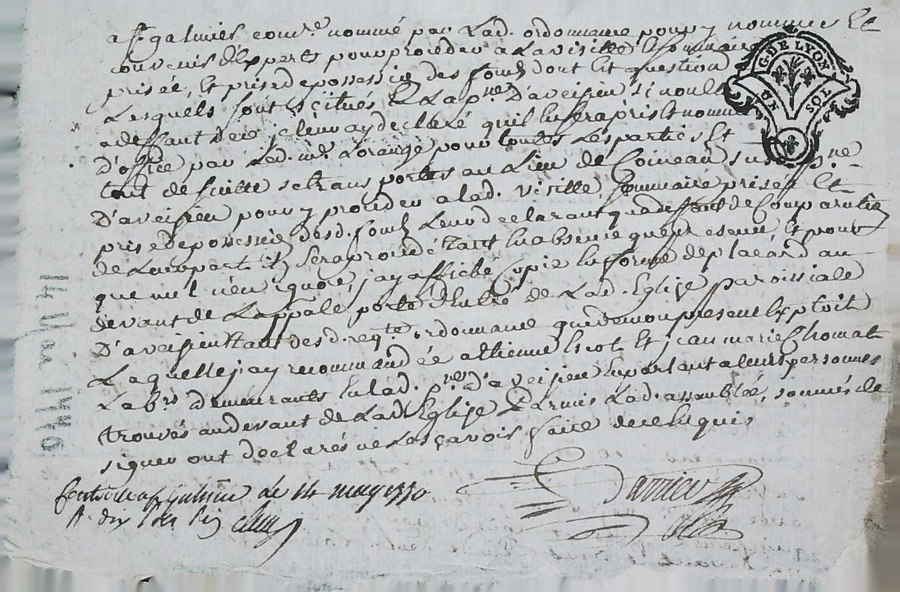 a St galmies com.re nommé par Lad. ordonnance pour y nommer Et
convenir d'Experts pour proceder a La visitte Sommaire
prisée, Et prise de possession des fonds dont Est question
Lesquels sont scitués En La p.sse D'aveisieu si non
a deffaut de ce je leur ay declaré qu'il En sera pris Et nommé
D'office par Lad. ord. pour toutes Les parties Et
tout de suitte se transporter au Lieu de Coineau sus.
D'aveisieu pour y proceder a lad. visitte Sommaire prisée Et
prise de possession desd. fonds Leur declarant qu'a deffaut de Comparution
de Leur part il sera procedé tant En absence qu'en presence Et pour
que nul n'en ignore, j'ay affiché Copie En forme de placard au
devant de La ppale porte d'Entrée de Lad. Eglise paroissiale
D'aveisieu tant desd. reqte. ordonnance que de mon present Exploit
Laquelle j'ay recommandée a Etienne Escot Et jean marie Thomat
Lab.rs demeurants En lad. p.sse D'aveisieu En parlant a leurs personnes
trouvés au devant de Lad. Eglise Parmis Lad. assemblée, sommés de
signer ont declaré ne Le sçavoir faire de ce Enquis
Controllé a St galmier Le 14 may 1770
R. dix sols six den.
Darrieu
G. DE LYON
SOL
14 Mai 1770